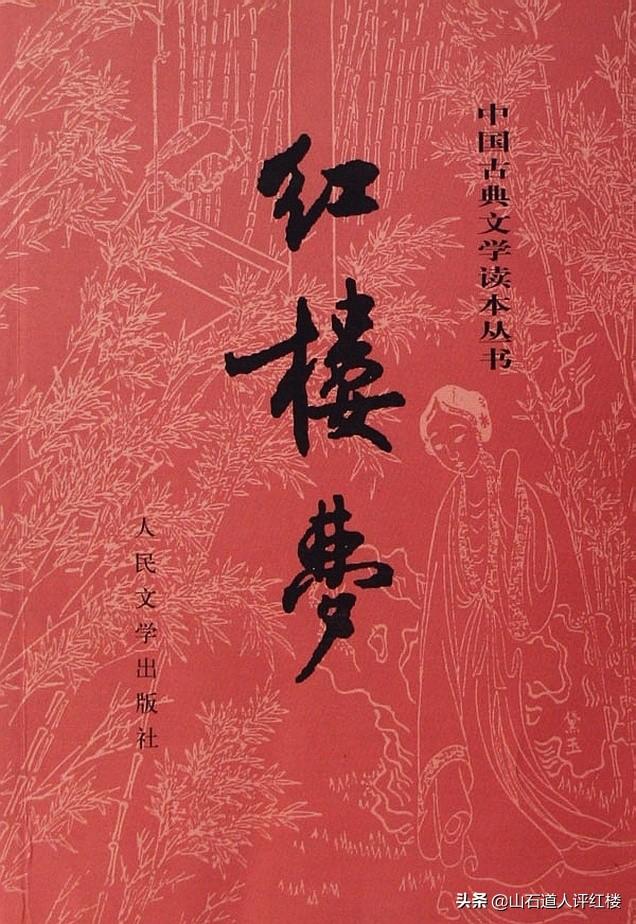 中国古典文学读本丛书
红楼梦
人民文学出版社
黛玉
头条 @山石道人评红楼